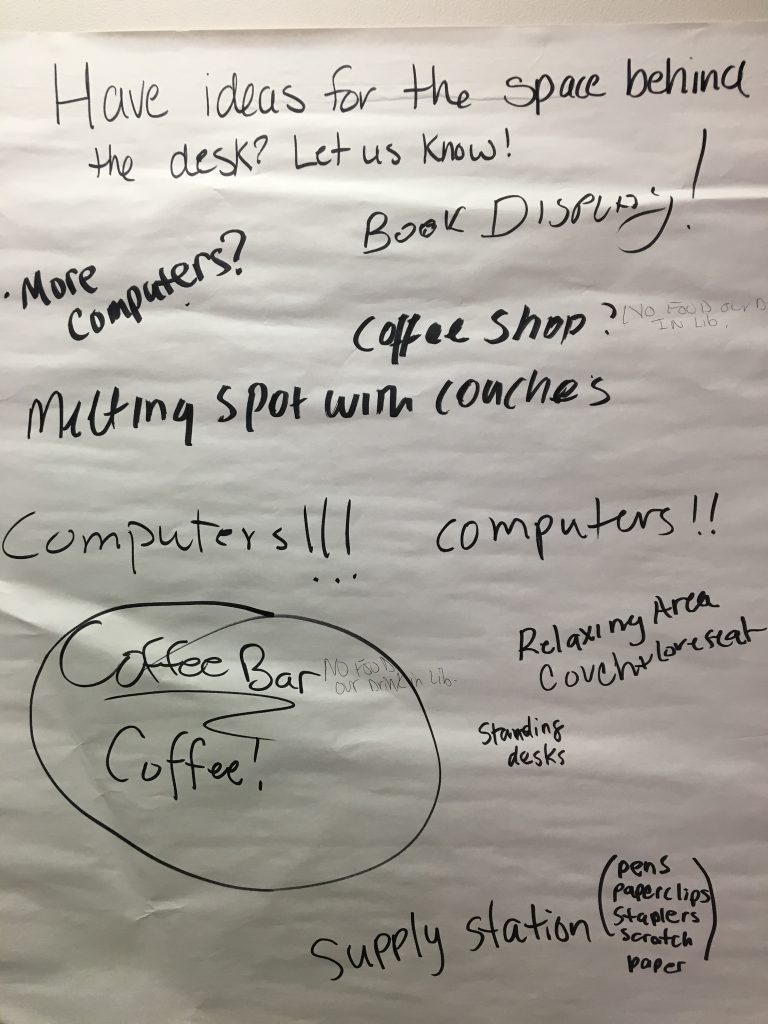 Have ideas for the space behind
the desk? Let us know!
Book Display!
· More
Computers?
Coffee shop?
(No Food our D
IN Lib.
Melting spot with couches
Computers!!!
computers!!
Coffee Bar
No Food
our Drink in Lib.
Coffee!
Relaxing Area
Couch + loveseat
Standing
desks
Supply station
(pens
paperclips
Staplers
scratch
paper)